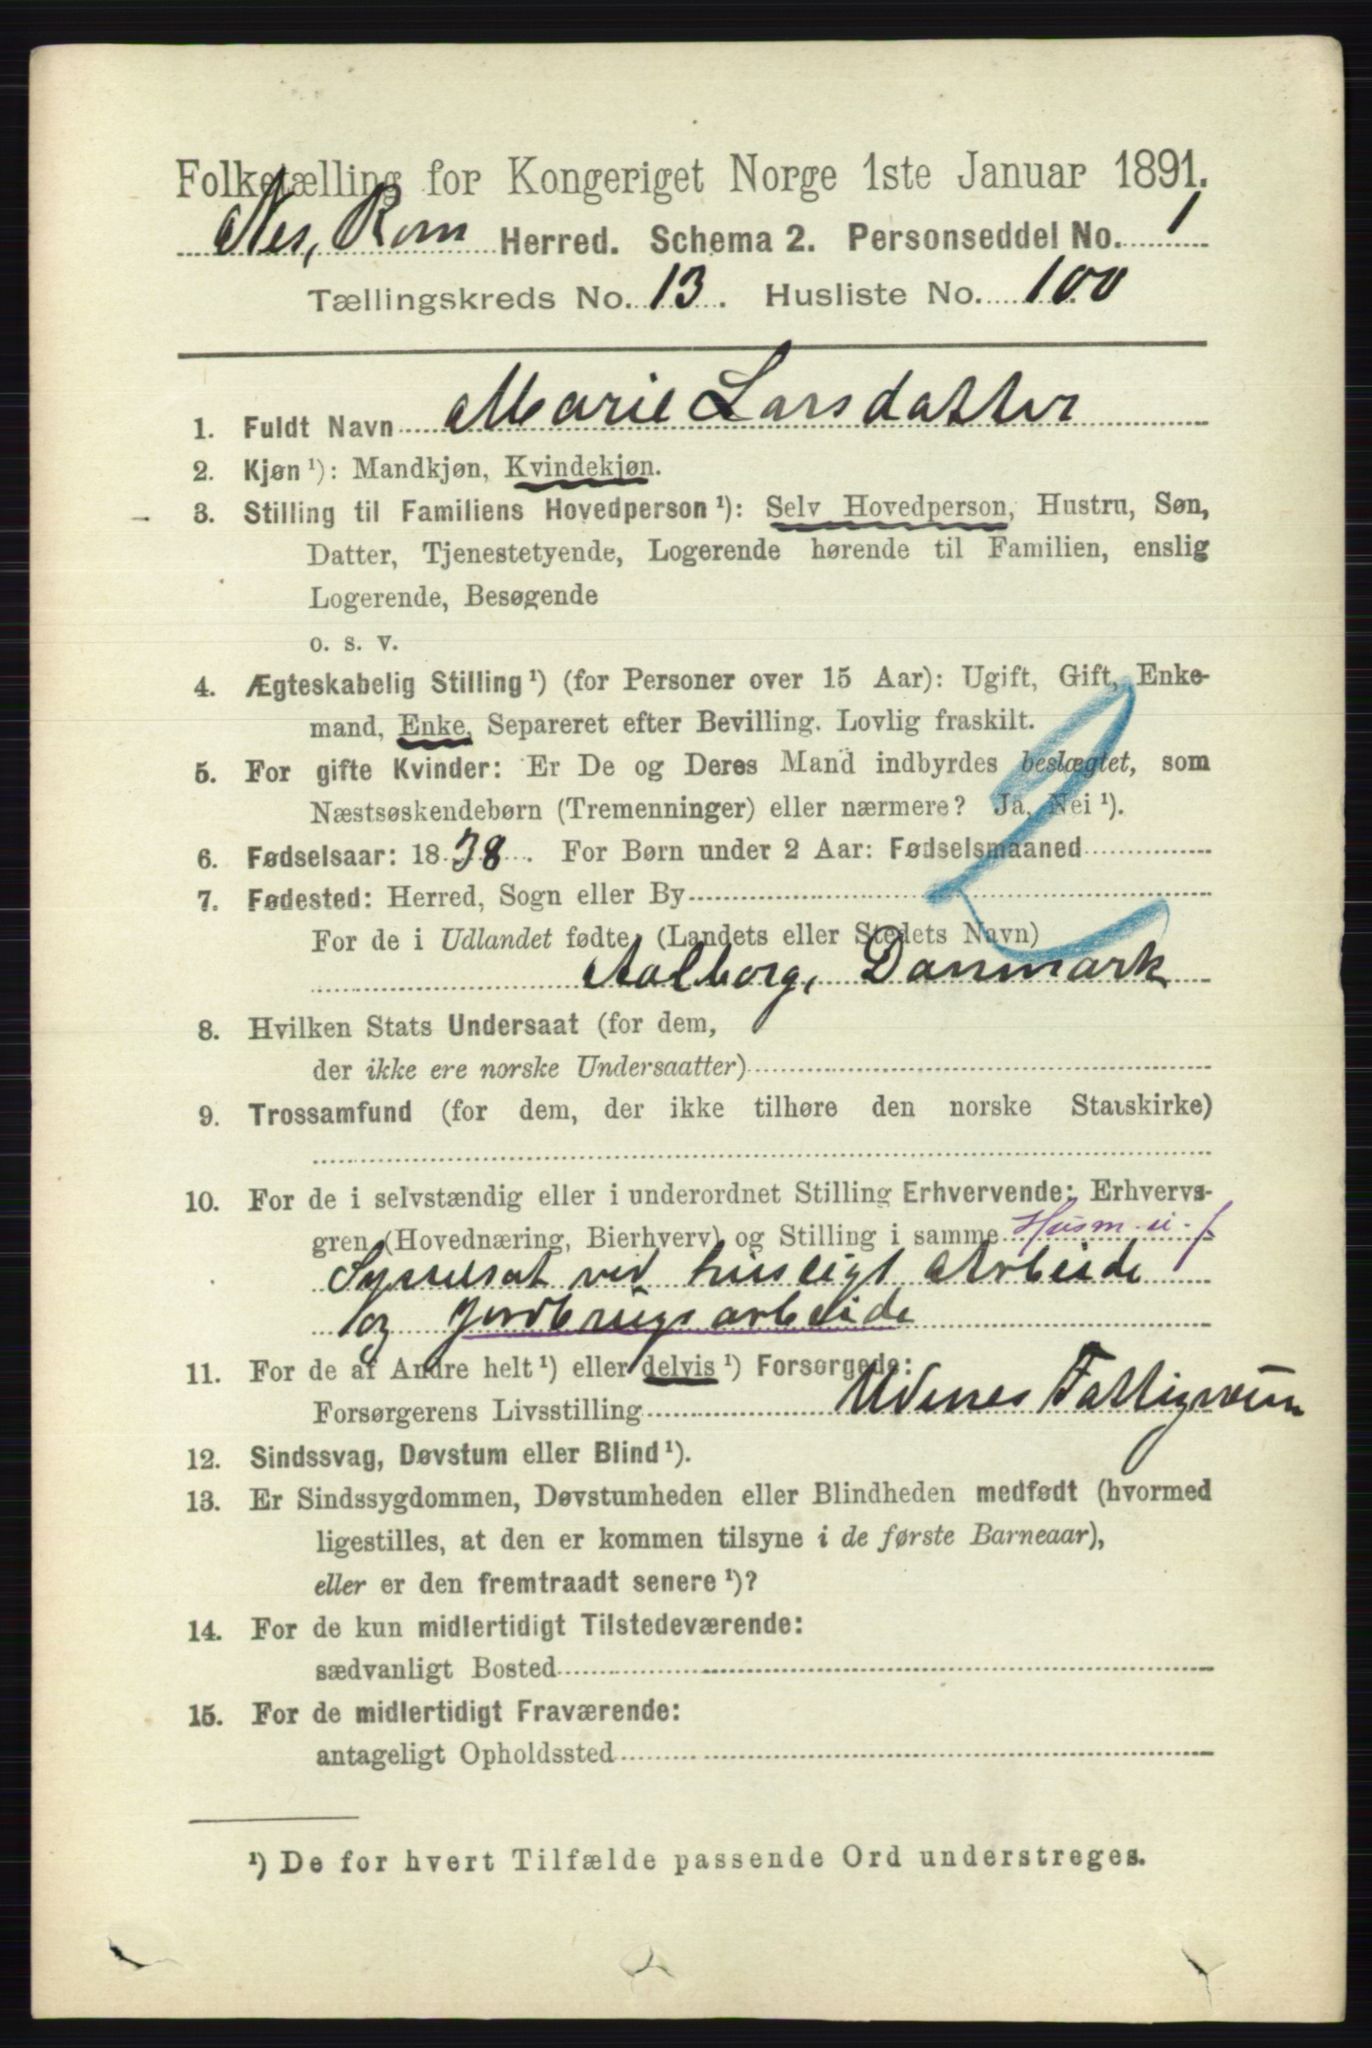 Folketælling for Kongeriget Norge 1ste Januar 1891.
Nes, Rom Herred. Schema 2. Personseddel No. 1
Tællingskreds No. 13. Husliste No. 100
1. Fuldt Navn Marie Larsdatter
2. Kjøn ¹): Mandkjøn, Kvindekjøn.
3. Stilling til Familiens Hovedperson ¹): Selv Hovedperson, Hustru, Søn,
Datter, Tjenestetyende, Logerende hørende til Familien, enslig
Logerende, Besøgende
o. s. v.
4. Ægteskabelig Stilling ¹) (for Personer over 15 Aar): Ugift, Gift, Enke-
mand, Enke, Separeret efter Bevilling. Lovlig fraskilt.
5. For gifte Kvinder: Er De og Deres Mand indbyrdes beslægtet, som
Næstsøskendebørn (Tremenninger) eller nærmere? Ja, Nei ¹).
6. Fødselsaar: 1838. For Børn under 2 Aar: Fødselsmaaned
7. Fødested: Herred, Sogn eller By
For de i Udlandet fødte (Landets eller Stedets Navn)
Aalborg, Danmark
8. Hvilken Stats Undersaat (for dem,
der ikke ere norske Undersaatter)
9. Trossamfund (for dem, der ikke tilhøre den norske Statskirke)
10. For de i selvstændig eller i underordnet Stilling Erhvervende: Erhvervs-
gren (Hovednæring, Bierhverv) og Stilling i samme Husm. u. f
Sysselsat ved husligt Arbeide
og Jordbrugsarbeide
11. For de af Andre helt ¹) eller delvis ¹) Forsørgede:
Forsørgerens Livsstilling Udenes Fattigvæsen
12. Sindssvag, Døvstum eller Blind ¹).
13. Er Sindssygdommen, Døvstumheden eller Blindheden medfødt (hvormed
ligestilles, at den er kommen tilsyne i de første Barneaar),
eller er den fremtraadt senere ¹)?
14. For de kun midlertidigt Tilstedeværende:
sædvanligt Bosted
15. For de midlertidigt Fraværende:
antageligt Opholdssted
¹) De for hvert Tilfælde passende Ord understreges.